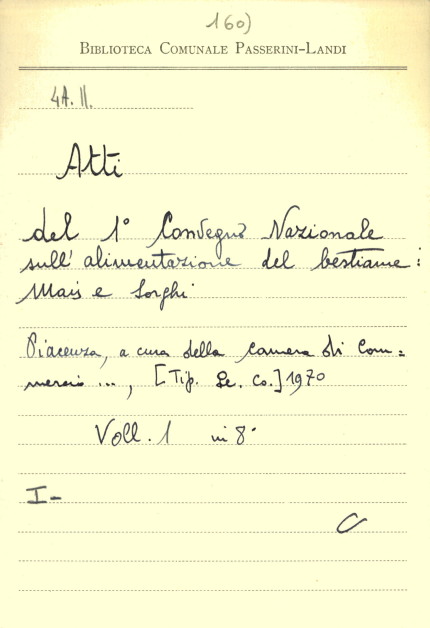 160)
BIBLIOTECA COMUNALE PASSERINI-LANDI
4A. II.
Atti
del 1° Convegno Nazionale
sull' alimentazione del bestiame:
Mais e Sorghi
Piacenza, a cura della camera di Com=
mercio ..., [Tip. Le. Co.] 1970
Voll. 1 in 8°
I-
C